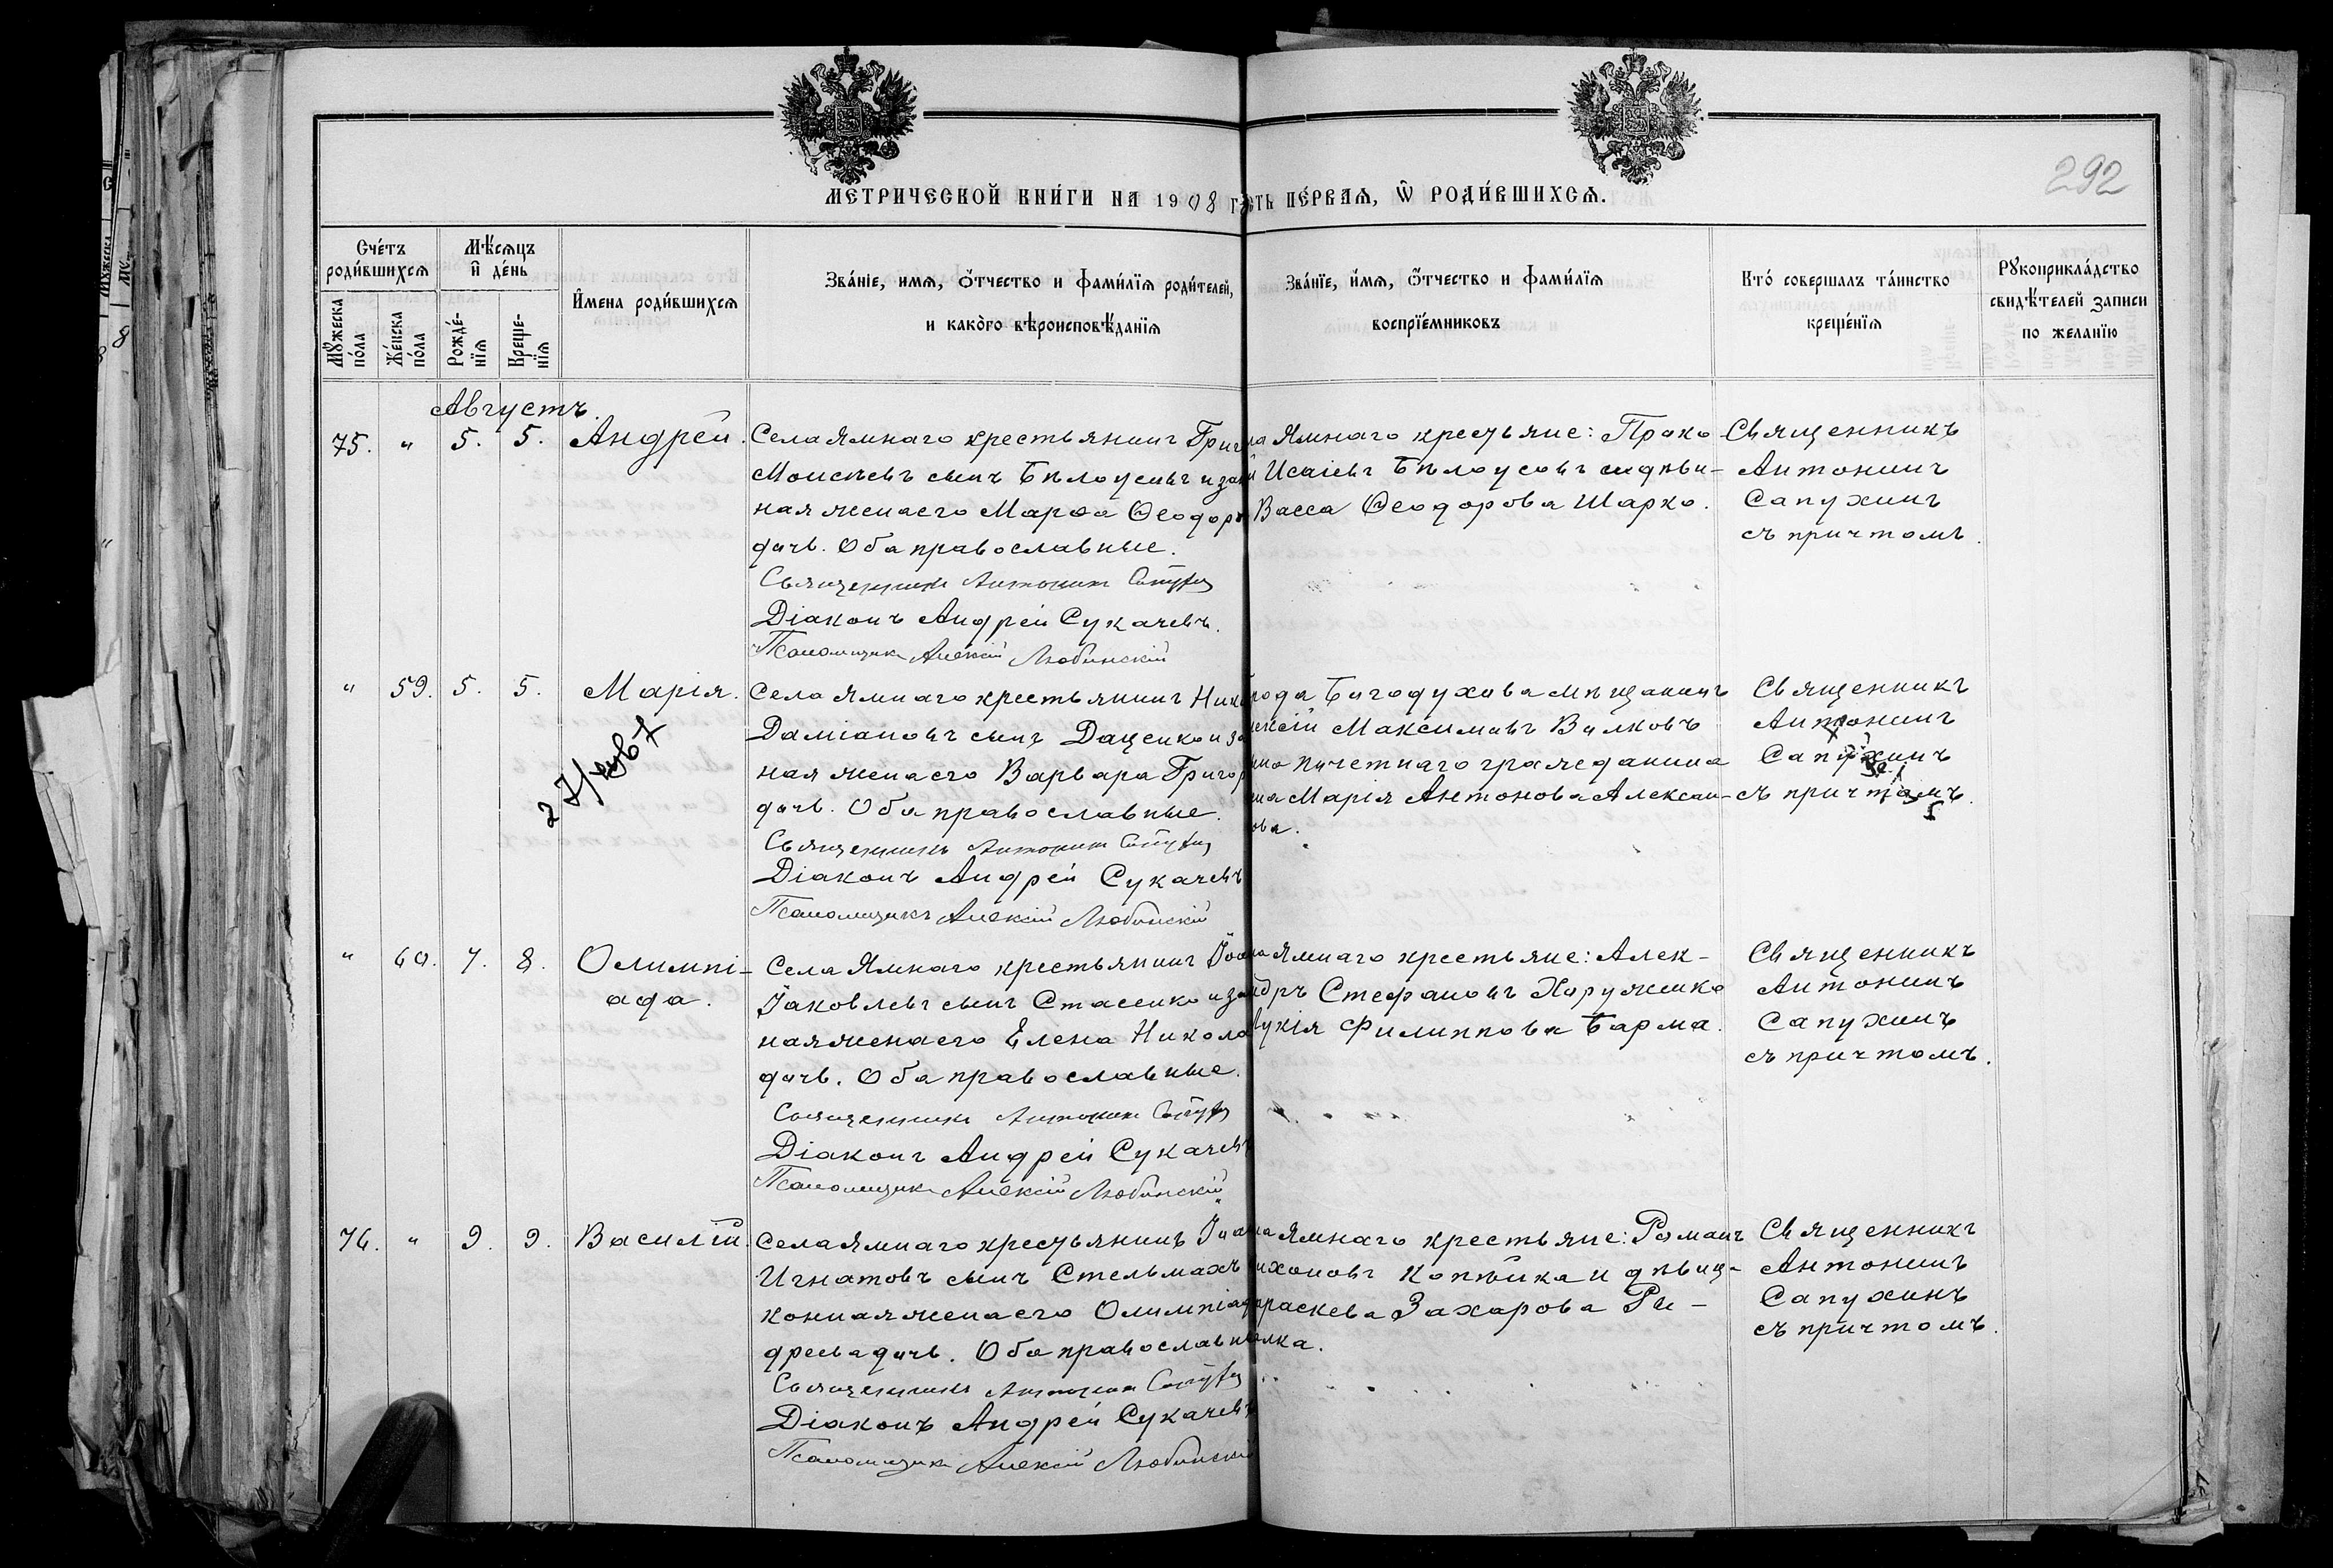 292
МЕТРИЧЕСКОЙ КНИ́ГИ НА 1908 г
СТЬ ПЕ́РВАѦ, Ѿ РОДИ́ВШИХСѦ.
Сче́тъ роди́вшихсѧ
Мѣ́сѧцъ и де́нь
Мꙋ́жеска по́ла
Же́нска по́ла
Рожде́-нїѧ
Креще-нїѧ
И҆мена роди́вшихсѧ
Зва́нїе, имѧ, ѻ҆́тчество и фами́лїѧ роди́телей,
и како́го вѣроисповѣ́данїѧ
Зва́нїе, и҆́мѧ, ѻ҆́тчество и фами́лїѧ
воспрїе́мниковъ
Кто́ совершалъ та́инство
креще́нїѧ
Рꙋкоприкла́дство
свидѣ́телей записи
по желанїю
Августъ.
75. " 5. 5. Андрей.
Села Ямнаго крестьянинъ Григ
Моисѣевъ сынъ Бѣлоусовъ и зак
ная жена его Марѳа Ѳеодоро
дичъ. Оба православные.
Священникъ Антонинъ
Діаконъ Андрей Сукачевъ.
Псаломщикъ Алексій Любинскій
ла Ямнаго крестьяне: Проко
й Исаіевъ Бѣлоусовъ и дѣви-
Васса Ѳеодорова Шарко.
Священникъ
Антонинъ
Сапухинъ
съ причтомъ.
" 59. 5. 5. Марія.
Села Ямнаго крестьянинъ Ник
Даміановъ сынъ Даценко и за
ная жена его Варвара Григор
дичъ. Оба православные.
Священникъ Антонинъ
Діаконъ Андрей Сукачевъ
Псаломщикъ Алексій Любинскій
рода Богодухова мѣщанинъ
ексій Максимовъ Волковъ
нно почетнаго гражданина
на Марія Антонова Алексан-
ова.
Священникъ
Антонинъ
Сапухинъ
съ причтомъ.
" 60. 7. 8. Олимпі-
ада.
Села Ямнаго крестьянинъ Іоан
Іаковлевъ сынъ Стасенко и зак
ная жена его Елена Никола
дичъ. Оба православные.
Священникъ Антонинъ
Діаконъ Андрей Сукачевъ
Псаломщикъ Алексій Любинскій
ла Ямнаго крестьяне: Алек-
ндръ Стефановъ Харужко
укія Филиппова Барма.
Священникъ
Антонинъ
Сапухинъ
съ причтомъ.
76. " 9. 9. Василій.
Села Ямнаго крестьянинъ Іоа
Игнатовъ сынъ Стельмахъ
конная жена его Олимпіад
дреева дичъ. Оба православн
Священникъ Антонинъ
Діаконъ Андрей Сукачевъ
Псаломщикъ Алексій Любинскій
ла Ямнаго крестьяне: Романъ
ихоновъ Копѣйка и дѣвиц-
араскева Захарова Ре-
лка.
Священникъ
Антонинъ
Сапухинъ
съ причтомъ.